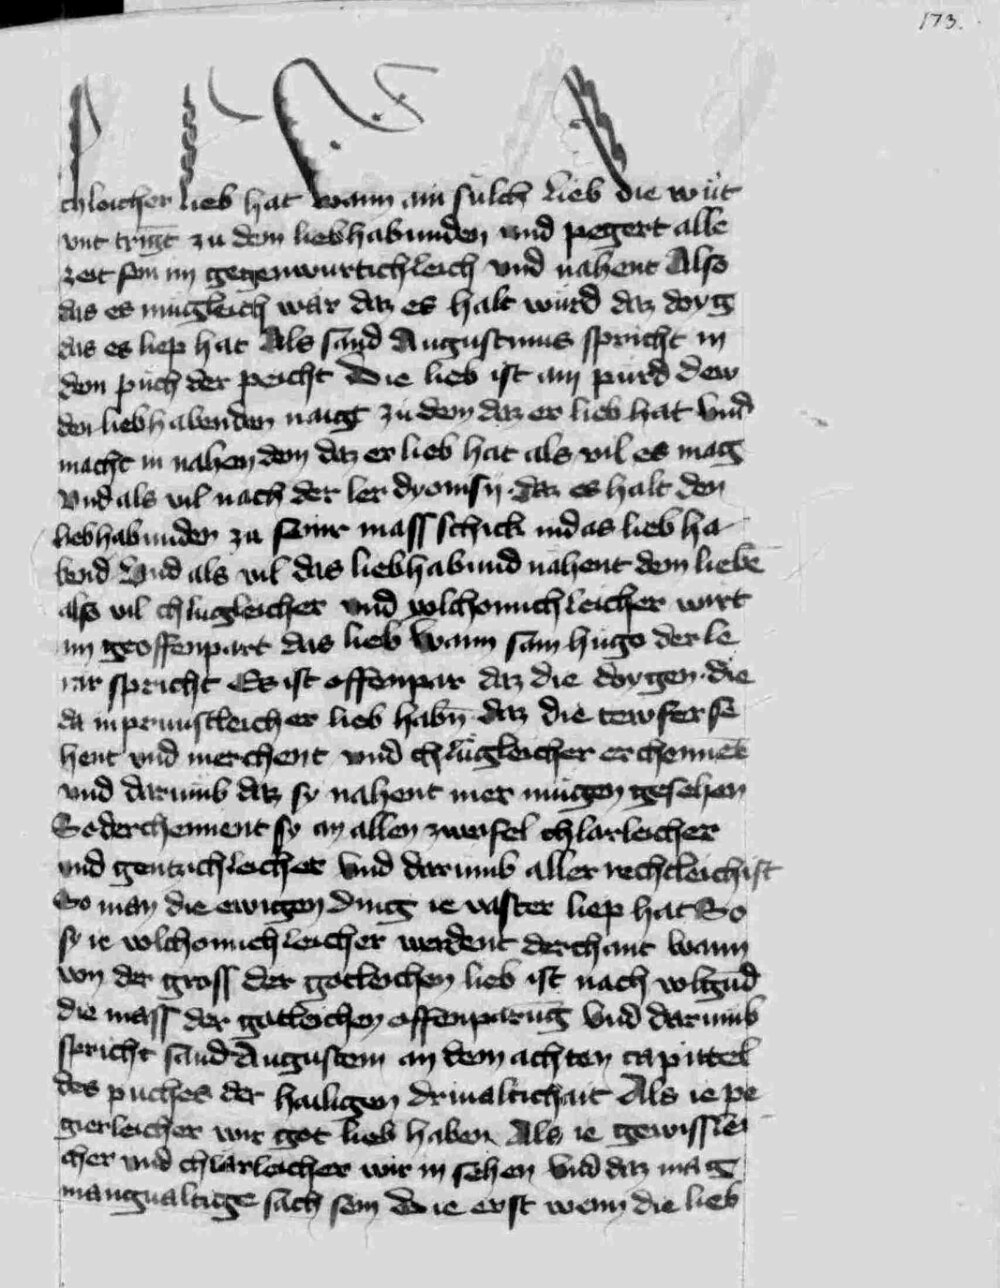 173.
chleicher lieb hat wann ain sulch lieb die wůt
vnt trıgt zu dem liebhabunden vnd pegert alle
zeit sein im gegenwurtichleich vnd nahent Also
das es mugleich wár daz es halt wurd daz doyg
das es liep hat Als sand Augustinus spricht in
dem puch der peicht Die lieb ist ain purd dew
den liebhabenden naigt zu dem daz er lieb hat Vnd
macht in nahen dem daz er lieb hat als vil es mag
Vnd als vil nach der ler dyonisij daz es halt den
liebhabunden zu seinr mass schick in das lieb ha
bend Vnd als vil das liebhabund nahent dem liebē
also vil chlugleicher vnd volchomichleicher wirt
im geoffenpart das lieb Wann sam hugo der le
rár spricht Es ist offenpar daz die doygen die
da inprunstleicher lieb habn̄ daz die tewfer se
hent vnd merchent vnd chlůgleicher erchennēt
vnd darumb daz sy nahent mer mugen gesehen
So derchennent sy an allen zweifel chlarleicher
vnd gentzichleicher Vnd darumb aller rechtleichist
So man die ewigen ding ie vaster liep hat So
sy ie volchomichleicher werdent derchant wann
von der gross der gotleichen lieb ist nach volgūd
die mass der gotleichen offenparūg Vnd darumb
spricht sand Augustein an dem achten capittel
des puches der hailigen driualtichait Als ie pe
gierleicher wir got lieb haben Als ie gewisslei
cher vnd chlarleicher wir in sehen Vnd daz mag
mangualtige sach sein Die erst wenn die lieb